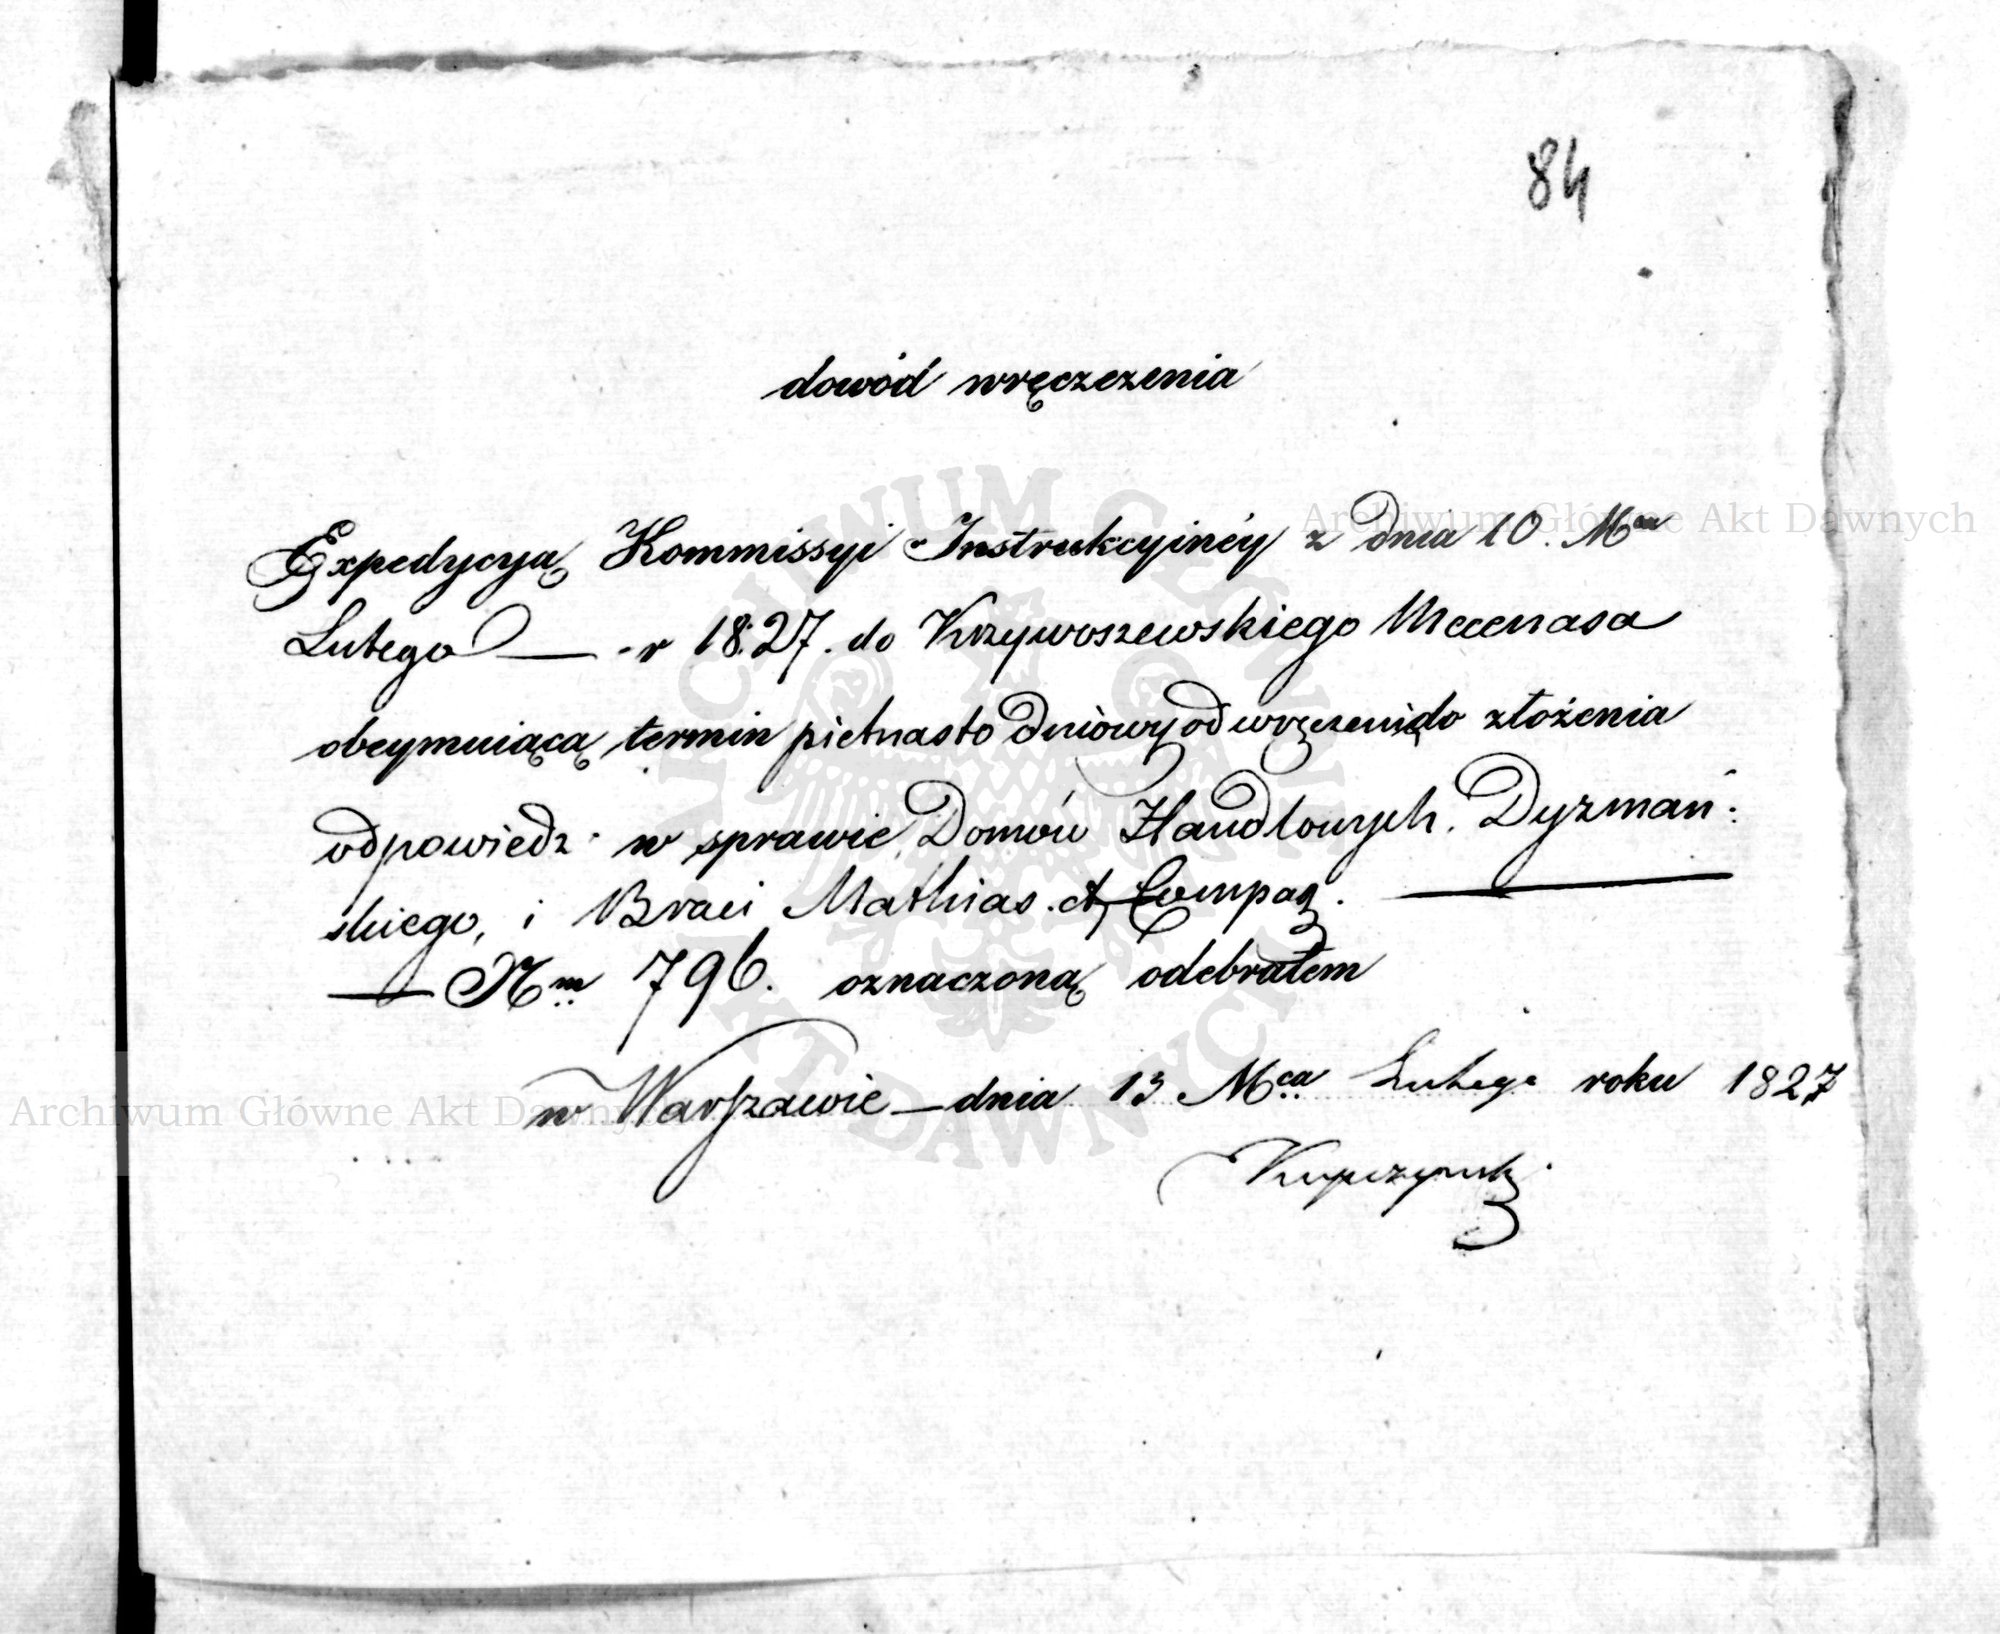 84
dowód wręczenia
Expedycyą Kommissyi Instrukcyinéy z dnia 10. Mca
Lutego — r 1827. do Krzywoszewskiego Mecenasa
obeymuiącą termin pietnasto dniowy od wręczenia do złożenia
odpowiedzi w sprawie Domów Handlowych. Dyzmań:
skiego, i Braci Mathias. et Comp. —
— Nrm 796. oznaczoną odebrałem
w Warszawie — dnia 13 Mca Lutego roku 1827
Archiwum Główne Akt Dawnych
Archiwum Główne Akt Dawnych
ARCHIWUM GŁÓWNE AKT DAWNYCH